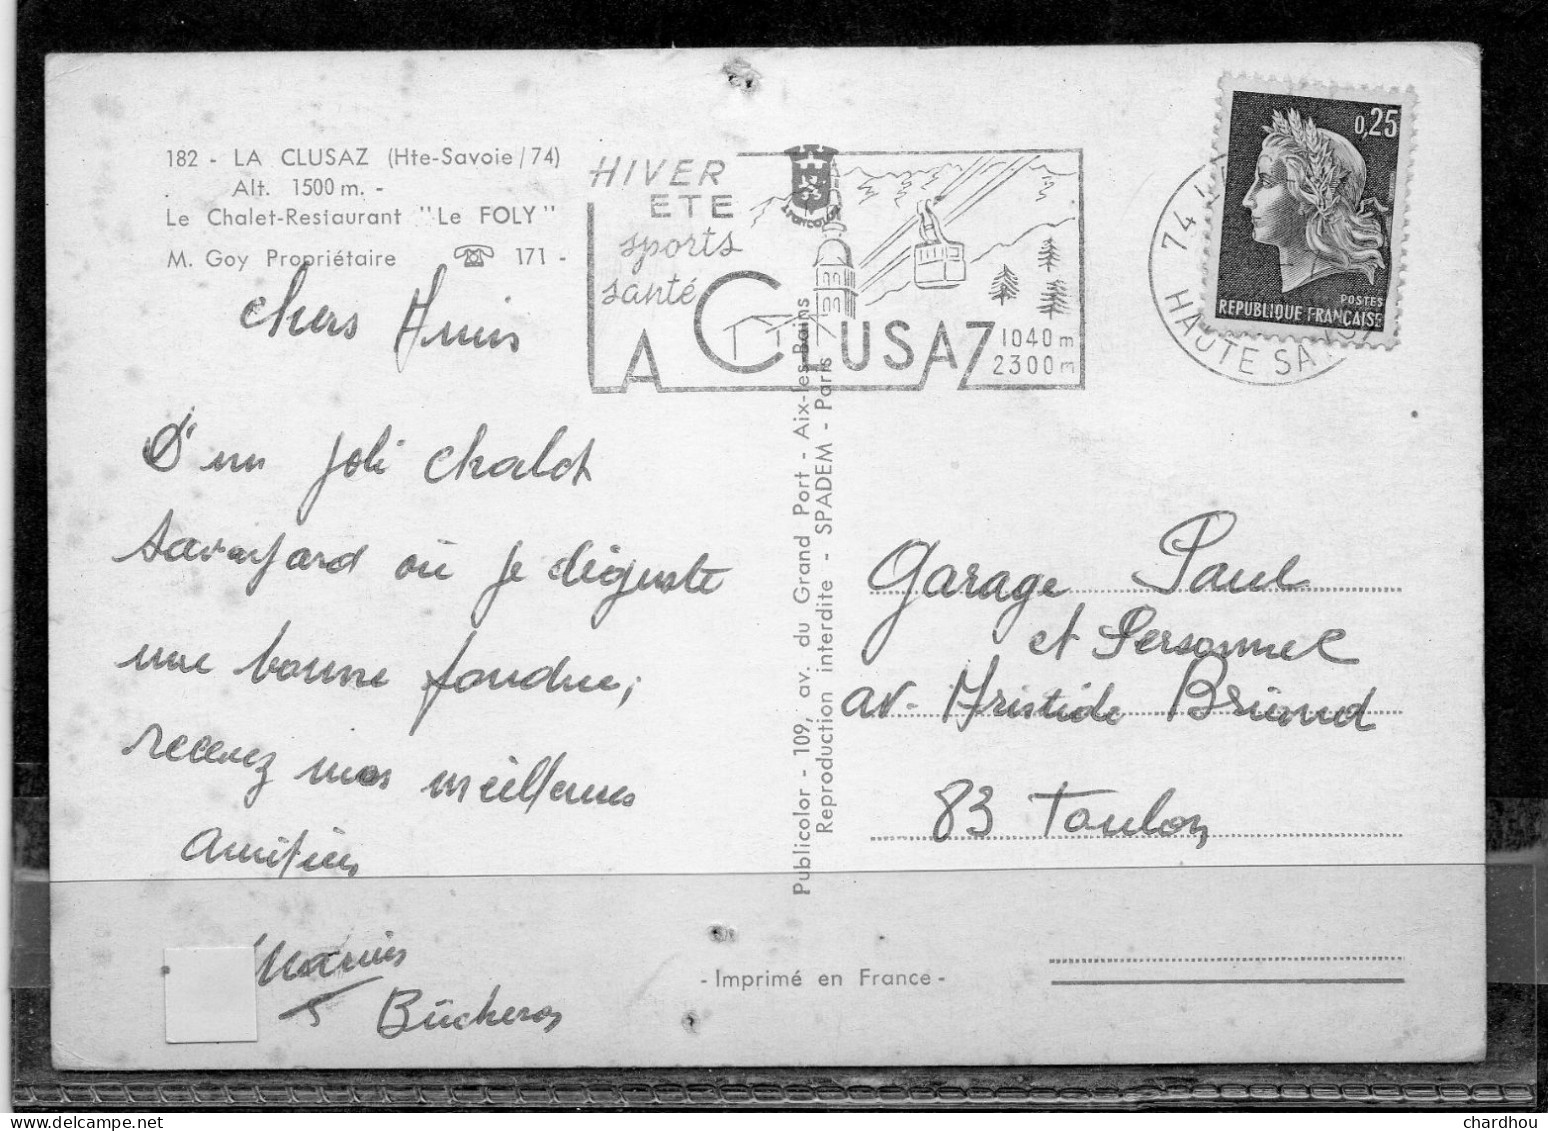 182 - LA CLUSAZ (Hte-Savoie/74)
Alt. 1500 m. -
Le Chalet-Restaurant "Le FOLY"
M. Goy Propriétaire ☎ 171 -
chers Amis
D'un joli chalet
savoyard où je déguste
une bonne fondue,
recevez mes meilleures
amitiés
Marius
Bücheron
HIVER
ETE
sports
santé
A
LA CLUSAZ
1040 m
2300 m
Publicolor - 109, av. du Grand Port - Aix-les-Bains
Reproduction interdite - SPADEM - Paris
0,25
POSTES
REPUBLIQUE FRANÇAISE
74 LA
HAUTE SA
Garage Paul
et Personnel
av. Aristide Briand
83 Toulon
- Imprimé en France -
chardhou